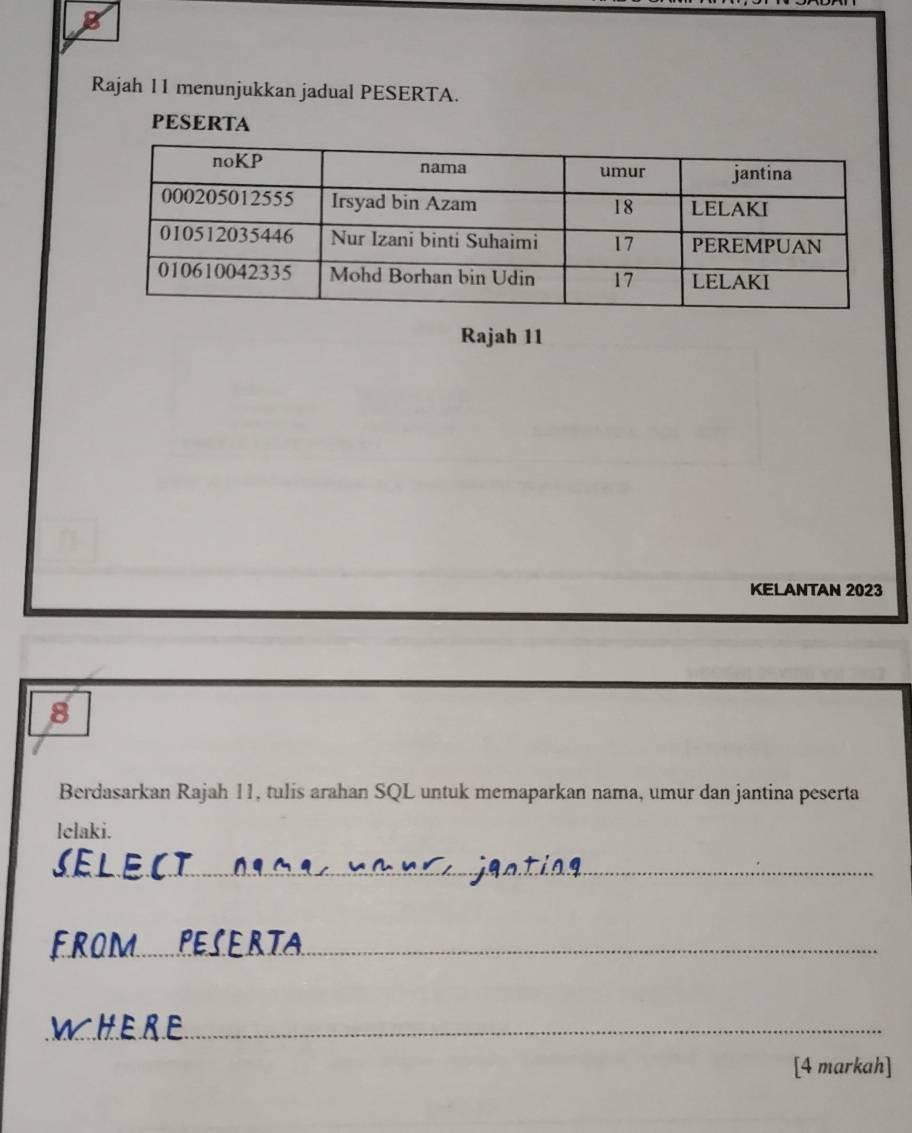 8
Rajah 11 menunjukkan jadual PESERTA.
PESERTA
noKP nama umur jantina
000205012555 Irsyad bin Azam 18 LELAKI
010512035446 Nur Izani binti Suhaimi 17 PEREMPUAN
010610042335 Mohd Borhan bin Udin 17 LELAKI
Rajah 11
KELANTAN 2023
8
Berdasarkan Rajah 11, tulis arahan SQL untuk memaparkan nama, umur dan jantina peserta
lelaki.
SELECT nama, umur, jantina
FROM PESERTA
WHERE
[4 markah]